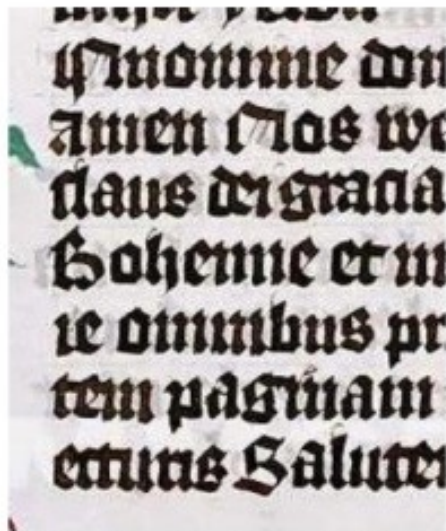 In nomine dom
amen Nos we
claus dei gracia
Bohemie et m
ie omnibus pr
tem paginam
ecturis Salutem